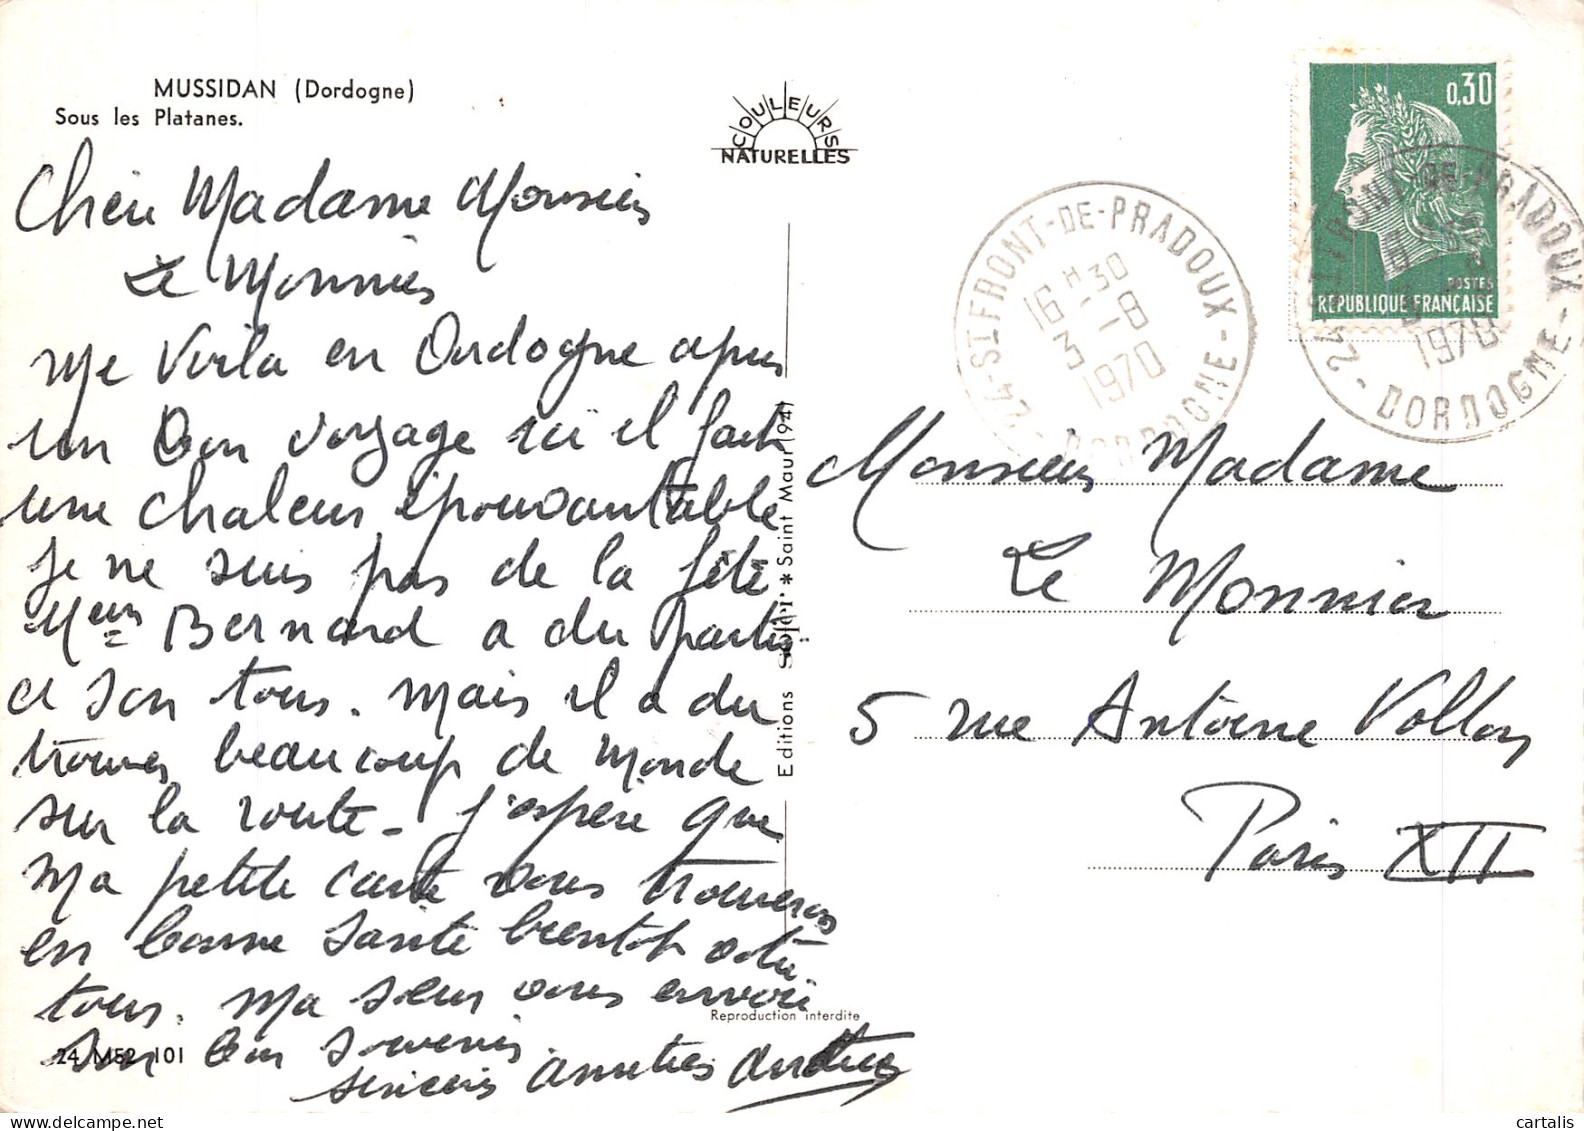 MUSSIDAN (Dordogne)
Sous les Platanes.
COULEURS
NATURELLES
0,30
POSTES
REPUBLIQUE FRANÇAISE
24-ST FRONT-DE-PRADOUX - DORDOGNE -
16H30
3-8
1970
24-ST FRONT-DE-PRADOUX - DORDOGNE -
1970
Chère Madame Monsieur
Le Monnier
Me Voila en Dordogne apres
un bon voyage ici il fait
une chaleur épouvantable
je ne suis pas de la fête
Bernard a du partir
et son tour. Mais il a du
trouver beaucoup de monde
sur la route - j'espère que
Ma petite carte vous trouveras
en bonne santé bientot votre
tour. Ma sœur vous envoie
son bon souvenir.
sincères amitiés
Editions * Saint Maur (94)
Monsieur Madame
Le Monnier
5 rue Antoine Vollon
Paris XII
Reproduction interdite
24 M52 101
cartalis